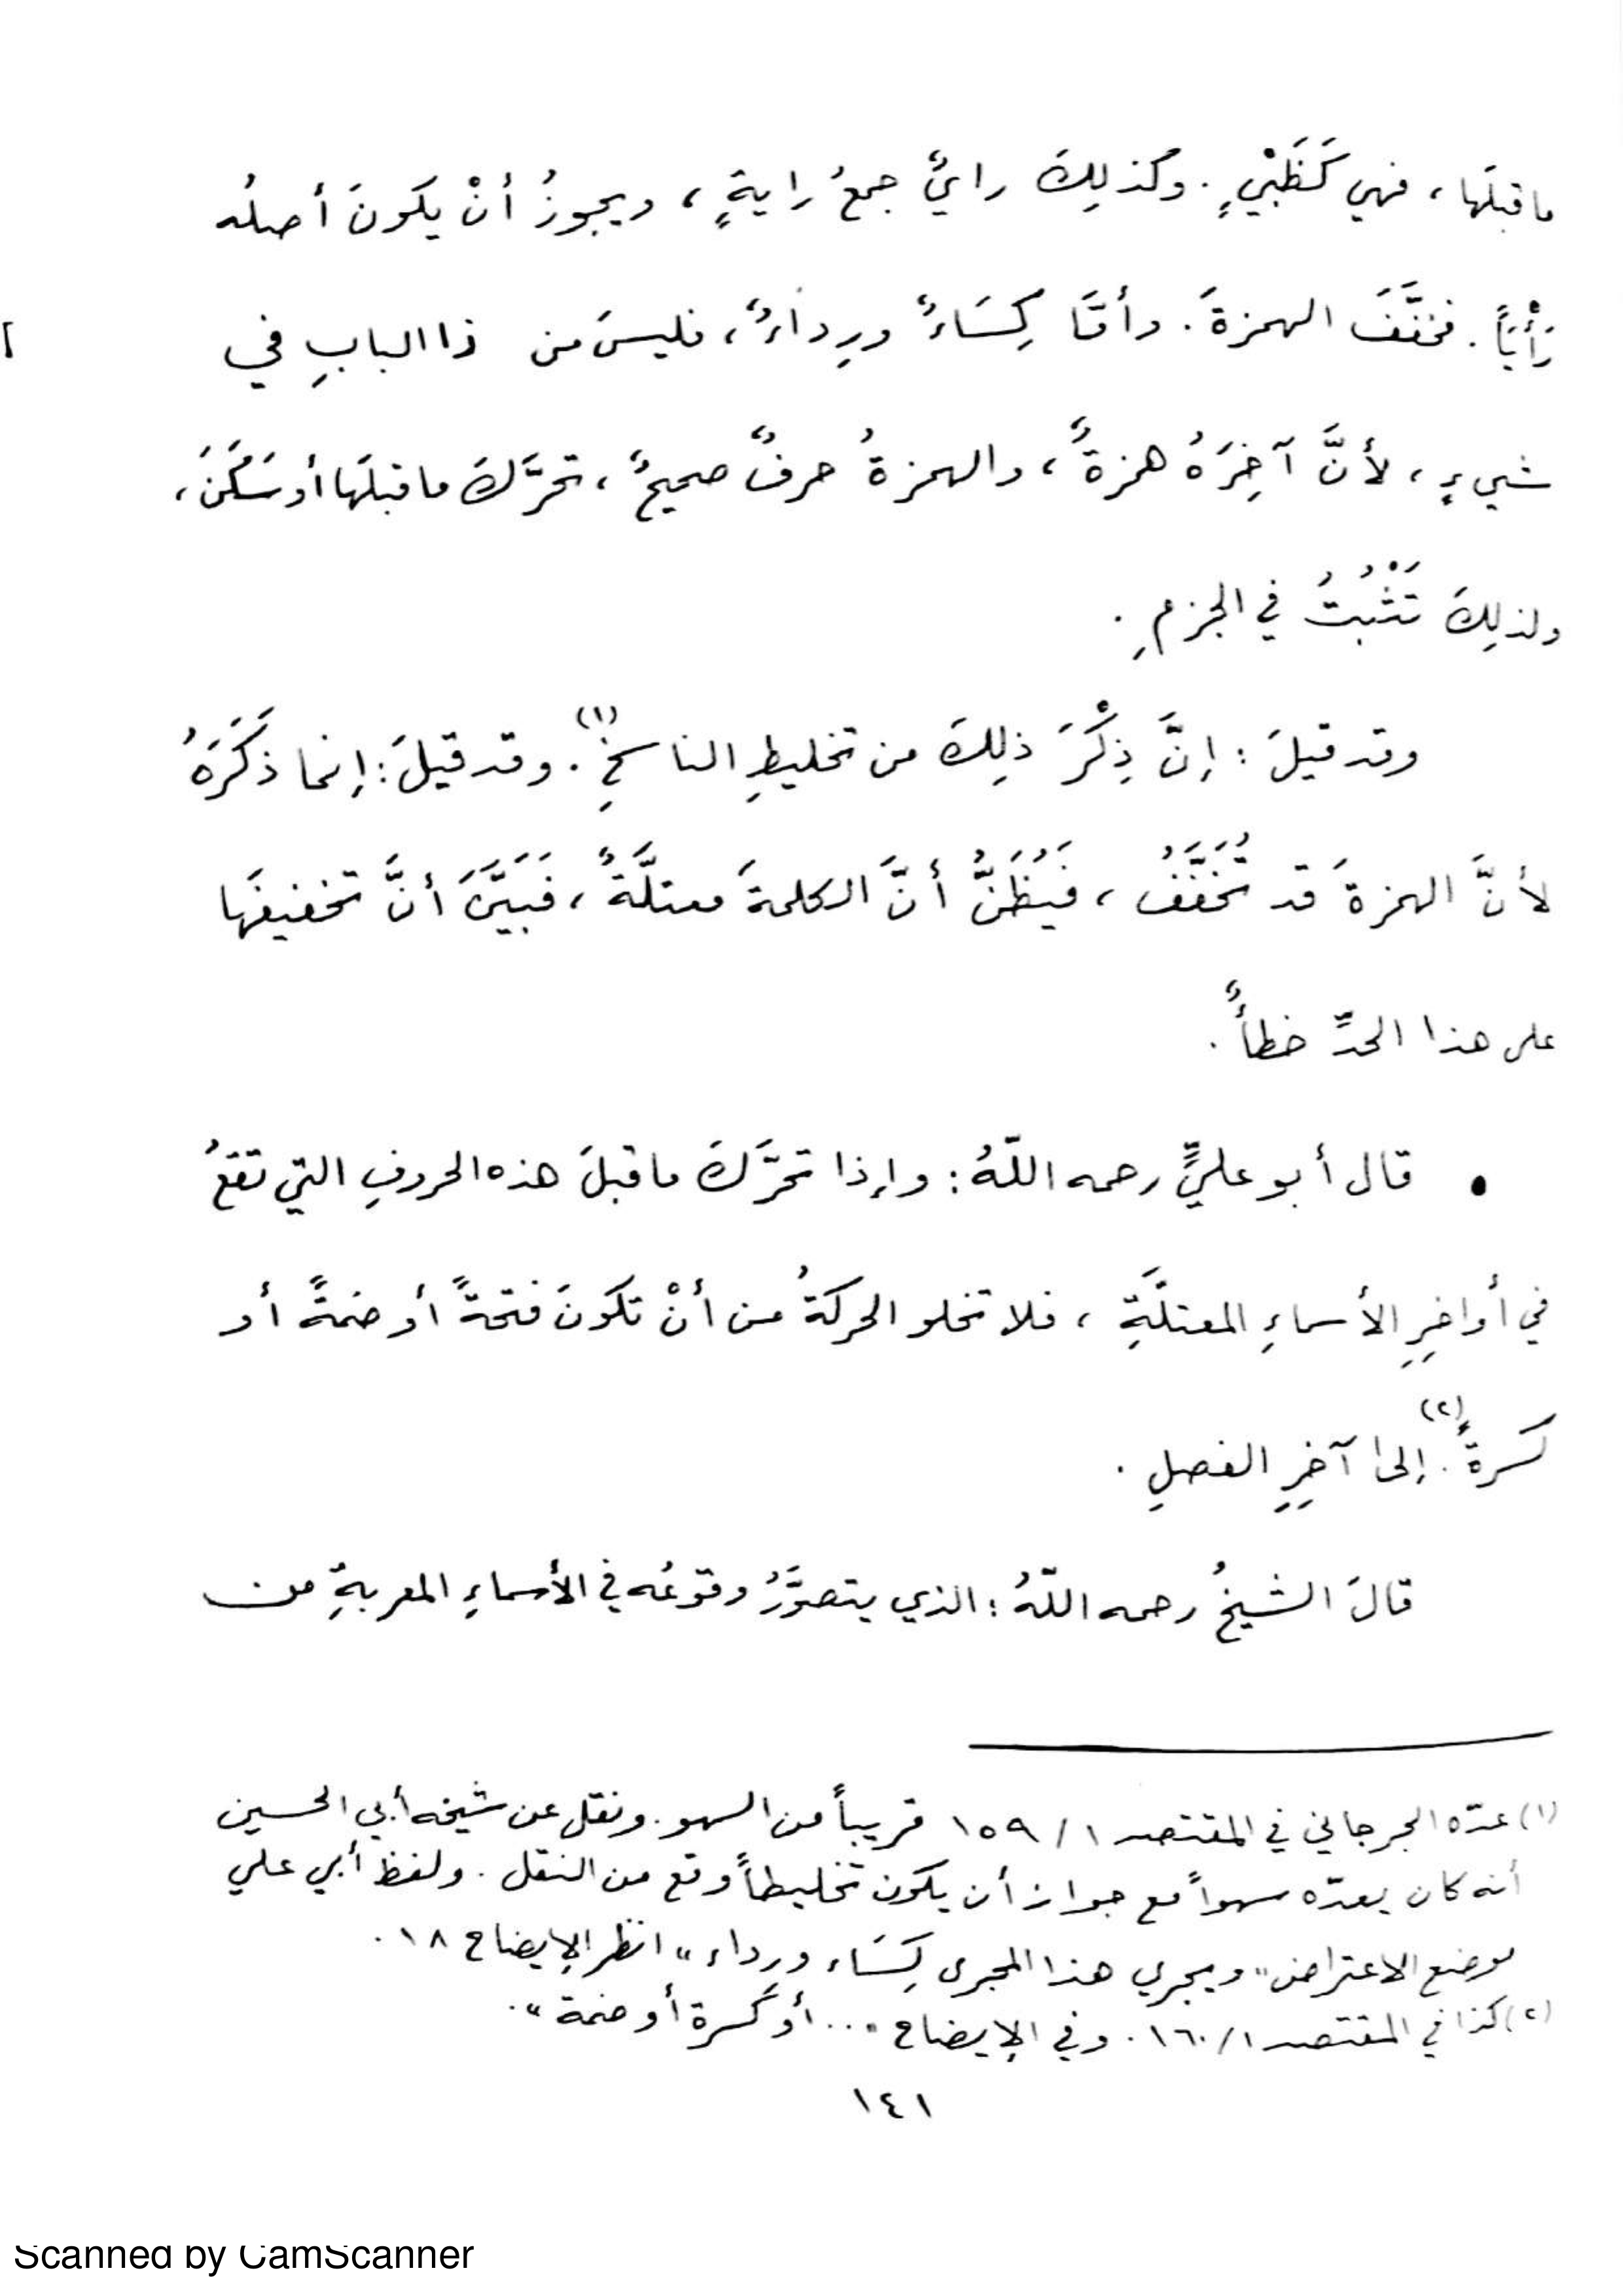 ما قبلَها، فهي كَظَبْيٍ. وكذلِكَ رايٌ جمعُ رايةٍ، ويجوزُ أنْ يكونَ أصلُه
رَأْيَاً. فخفَّفَ الهمزةَ. وأمَّا كِسَاءٌ ورِداءٌ، فليسَ من ذا البابِ في
شيءٍ، لأنَّ آخِرَهُ همزةٌ، والهمزةُ حرفٌ صحيحٌ، تحرَّكَ ما قبلَها أو سَكَنَ،
ولذلِكَ تَثْبُتُ في الجزمِ.
وقد قيلَ: إنَّ ذِكْرَ ذلِكَ من تخليطِ الناسخِ(١). وقد قيلَ: إنما ذَكَرَهُ
لأنَّ الهمزةَ قد تُخَفَّفُ، فَيُظَنُّ أنَّ الكلمةَ معتلَّةٌ، فبَيَّنَ أنَّ تخفيفَها
على هذا الحدِّ خطأٌ.
• قال أبو عليٍّ رحمه اللّهُ: وإذا تحرَّكَ ما قبلَ هذه الحروفِ التي تقعُ
في أواخِرِ الأسماءِ المعتلَّةِ، فلا تخلو الحركةُ من أنْ تكونَ فتحةً أو ضمةً أو
كسرةً(٢). إلى آخِرِ الفصلِ.
قالَ الشيخُ رحمه اللّهُ: الذي يتصوَّرُ وقوعُه في الأسماءِ المعربةِ من
(١) عدّه الجرجاني في المقتصد ١/١٥٩ قريباً من السهو. ونقل عن شيخه أبي الحسين
أنه كان يعدّه سهواً مع جواز أن يكون تخليطاً وقع من النقل. ولفظ أبي علي
موضع الاعتراض "ويجري هذا المجرى كِسَاء ورِداء" انظر الإيضاح ١٨.
(٢) كذا في المقتصد ١/١٦٠. وفي الإيضاح "... أو كَسرة أو ضمة".
١٤١
Scanned by CamScanner